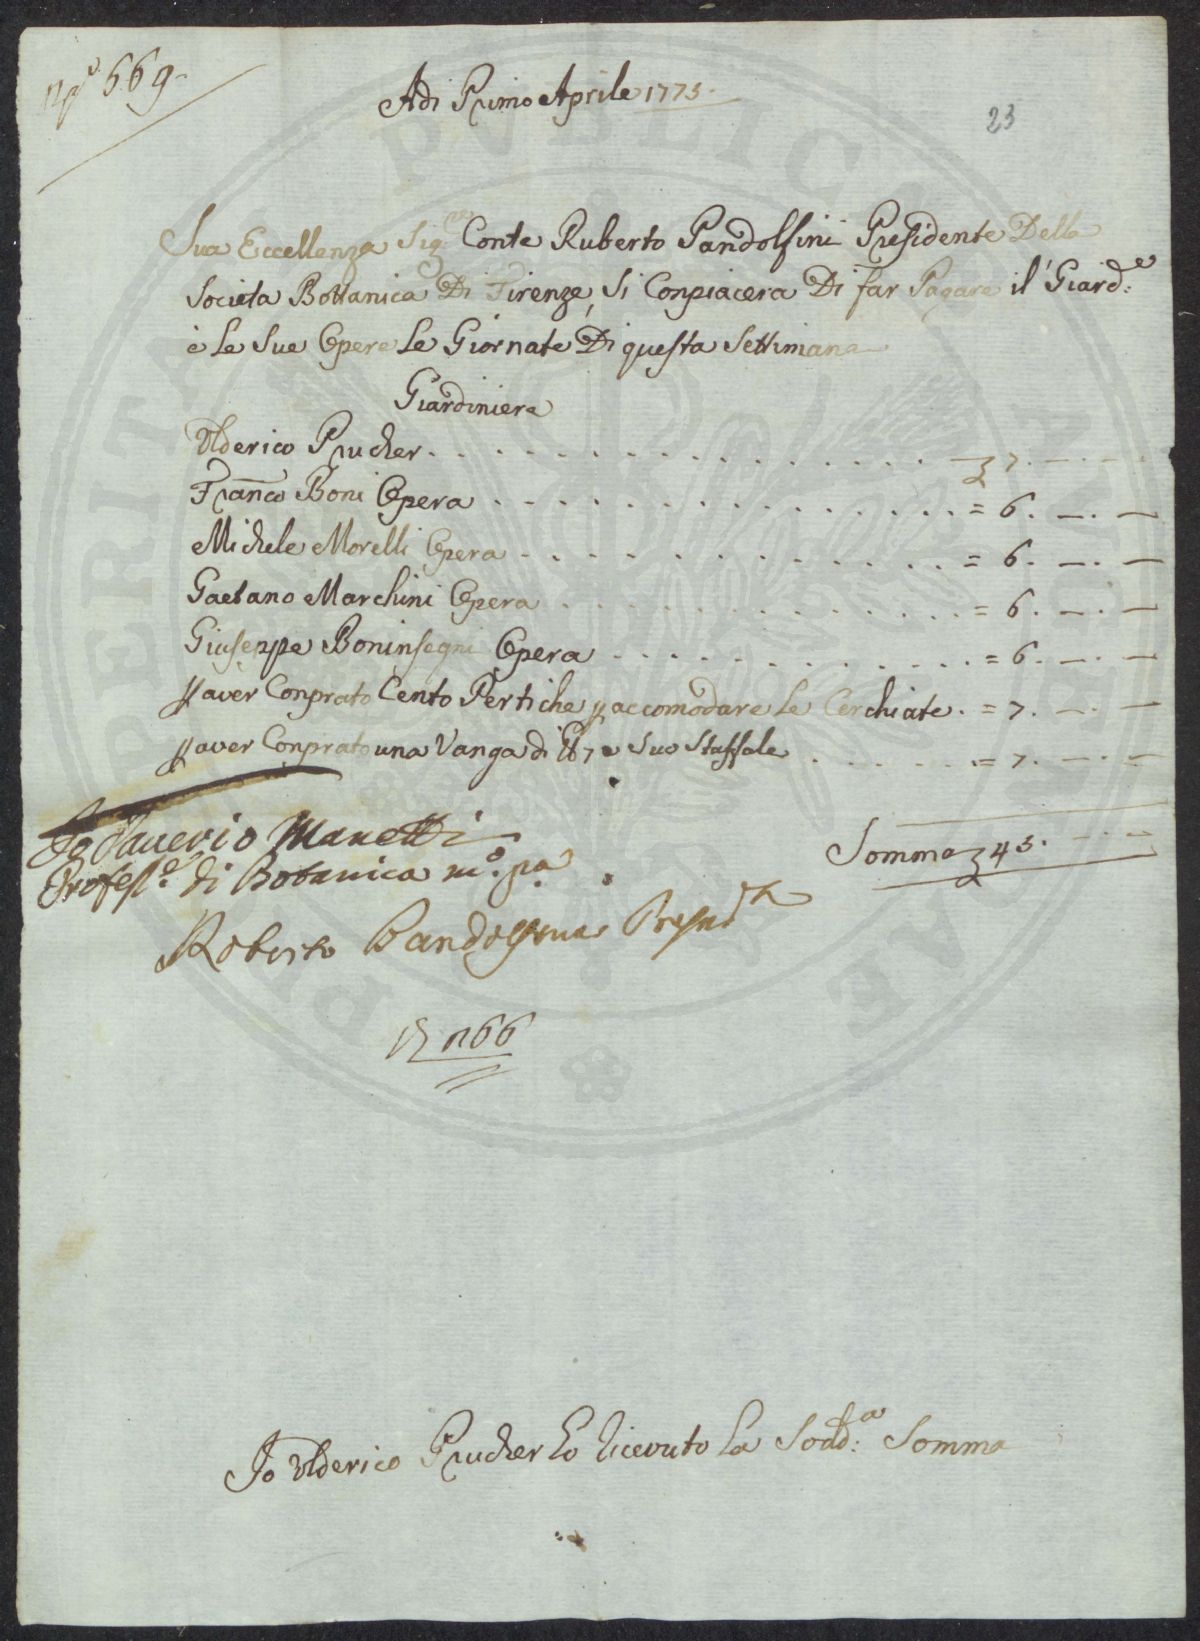 N.º 669.
Adi Primo Aprile 1775.
23
Sua Eccellenza Sig.re Conte Ruberto Pandolfini Presidente Della
Societa Bottanica Di Firenze, Si Conpiacera Di far Pagare il Giard.e
e Le Sue Opere Le Giornate Di questa Settimana
Giardiniere
Vlderico Prucher . . . . . . . . . . . . . 7. — . —
Fran.co Boni Opera . . . . . . . . . . . . . = 6. — . —
Michele Morelli Opera . . . . . . . . . . . . = 6. — . —
Gaetano Marchini Opera . . . . . . . . . . . . = 6. — . —
Giuseppe Boninsegni Opera . . . . . . . . . . . = 6. — . —
p aver Conprato Cento Pertiche p accomodare Le Cerchiate . = 7. — . —
p aver Conprato una Vanga di lb 7 e Suo Staffale . . . . . . = 7. — . —
Somma 45. — . —
Io Saverio Manetti
Profess.e di Botanica m.o pa
Roberto Pandolfini Presid.te
n 66
Io Vlderico Prucher Ho Ricevuto La Sodd.a Somma
PVBLICAE
VTILITATE
PVBLICAE